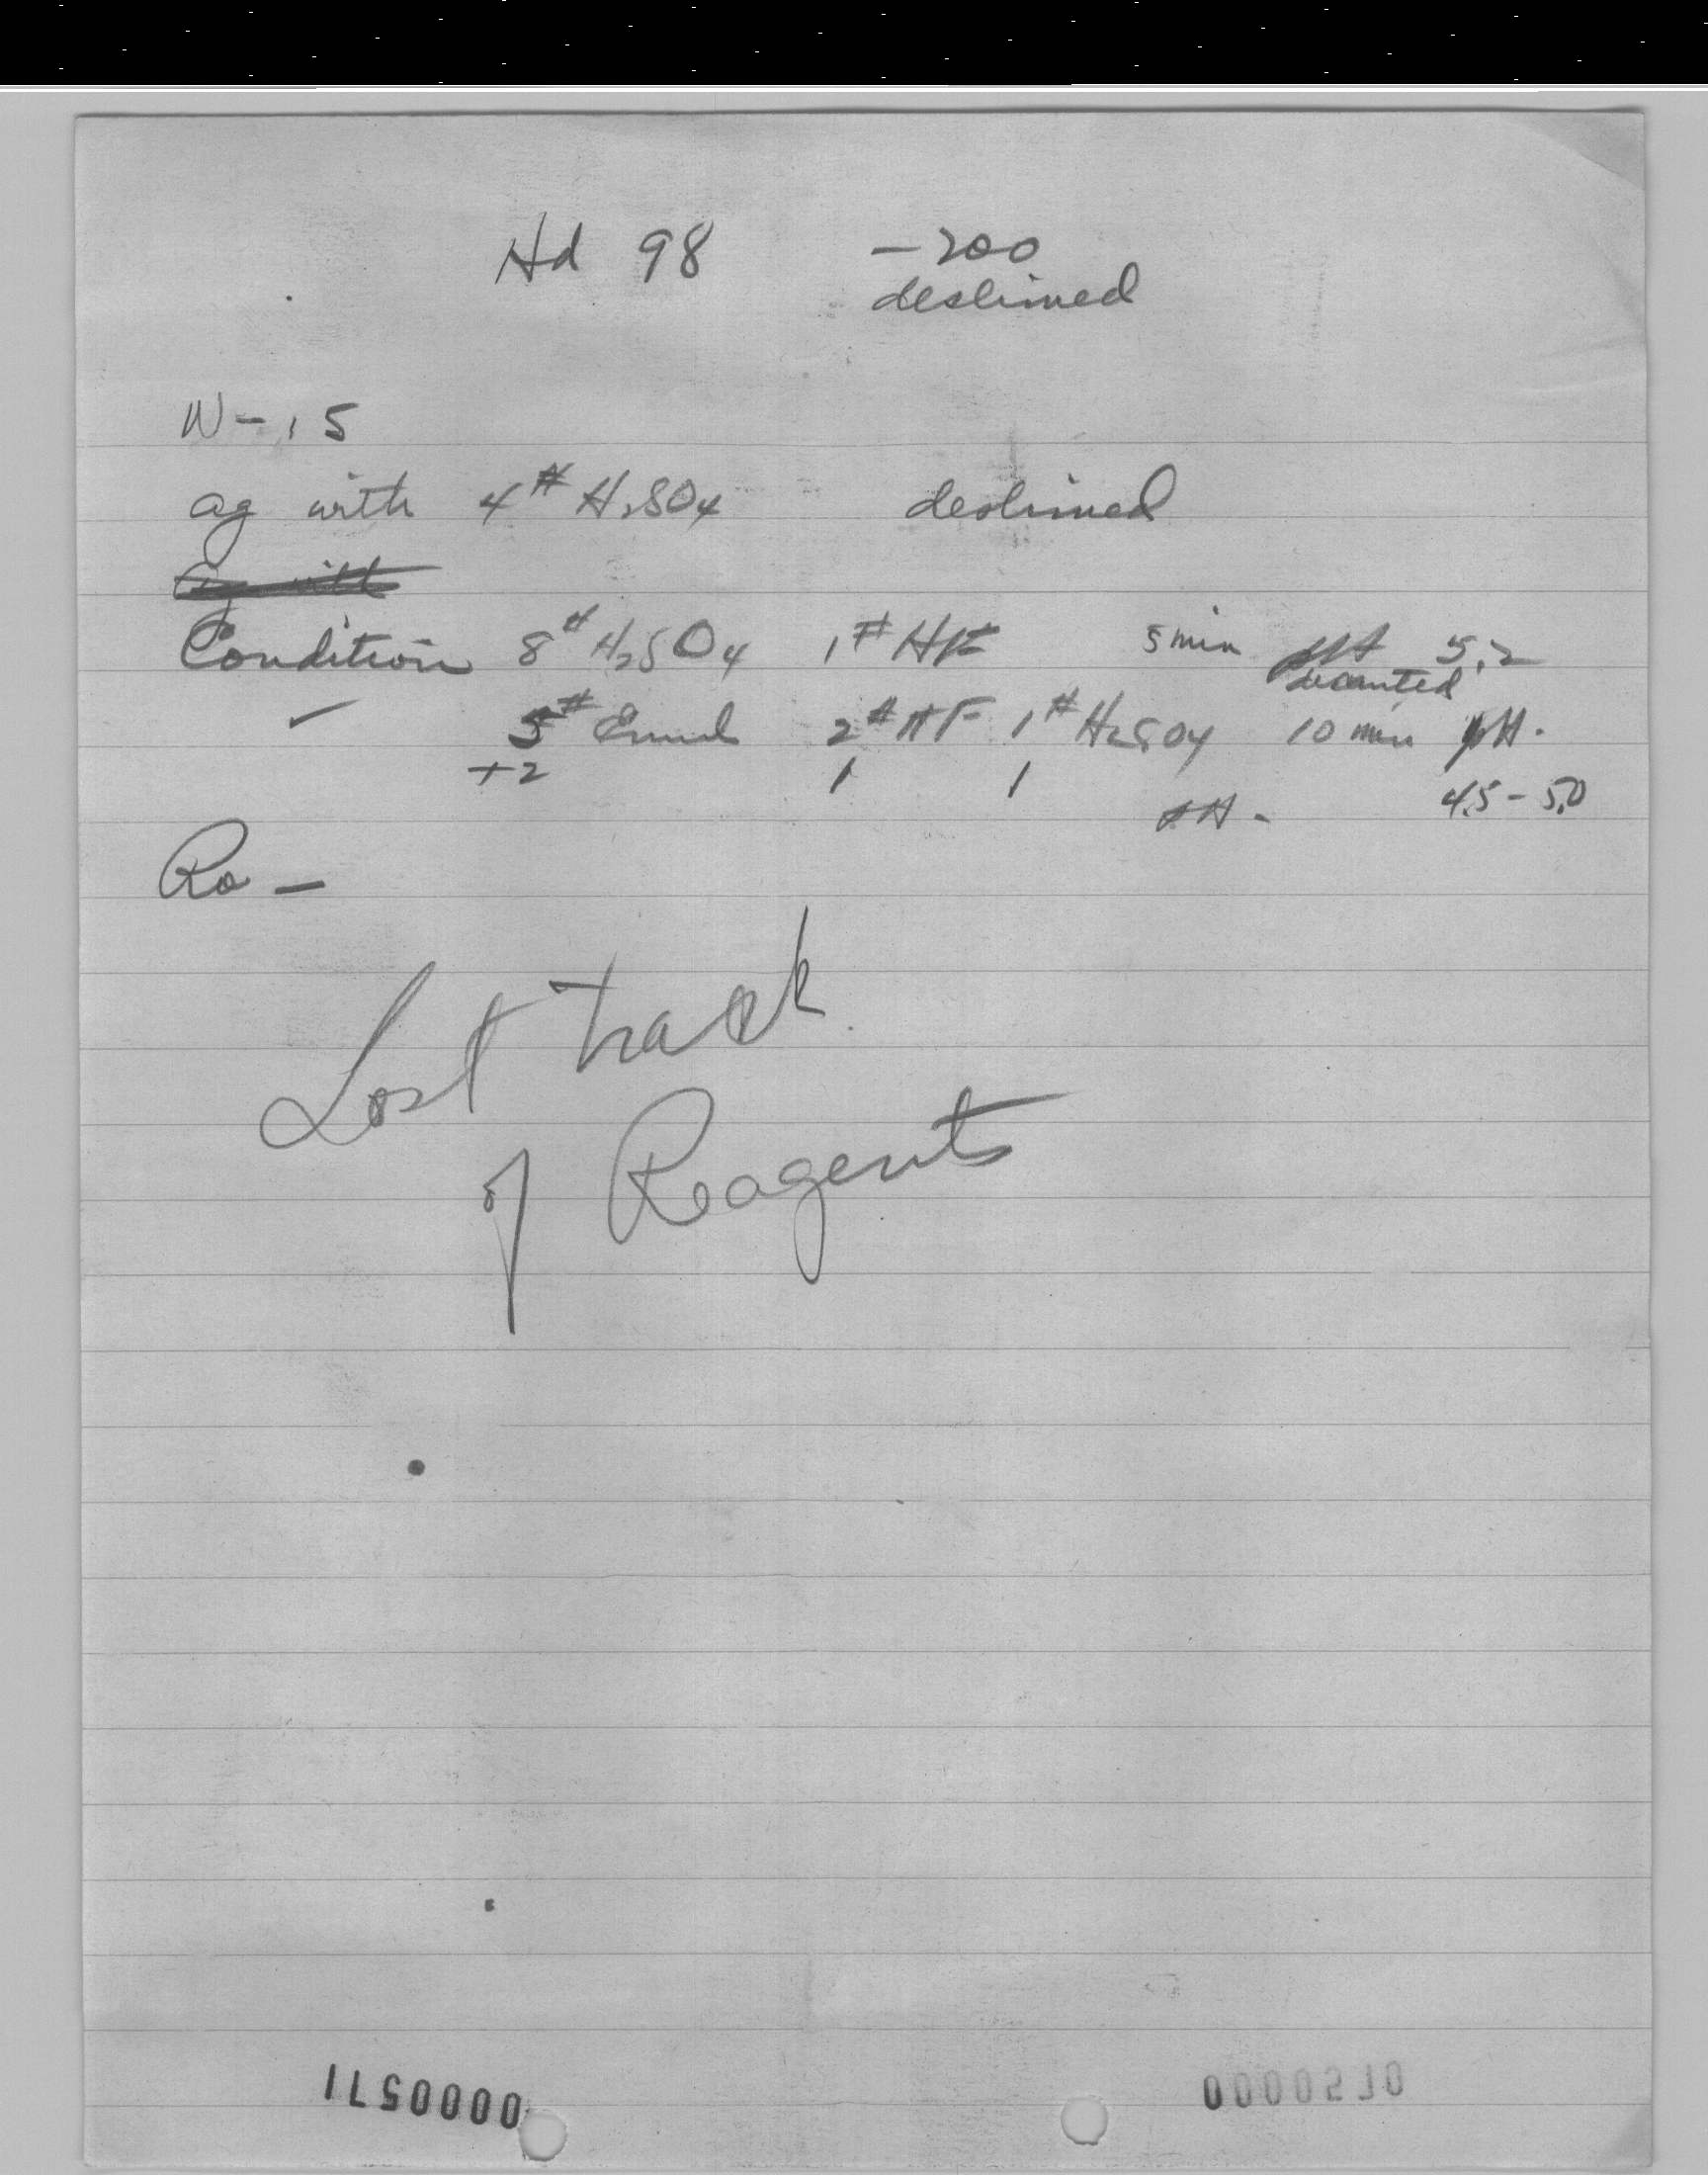 Hd 98 -200
deslimed
W-.15
ag with 4# H2SO4 deslimed
Condition 8# H2SO4 1# HF 5 min pH 5.2
decanted
✓ 5# Emul 2# HF 1# H2SO4 10 min pH.
+2 1 1
pH - 4.5 - 5.0
Ro -
Lost track
of Reagents
0000571
0000570